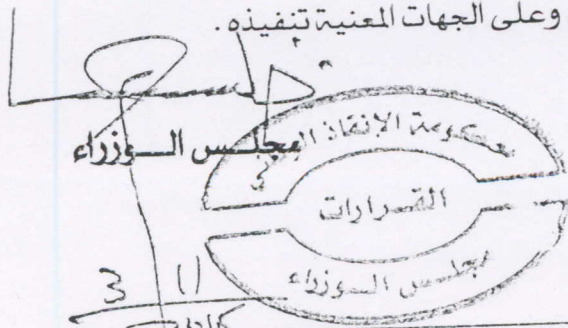 وعلى الجهات المعنية تنفيذه.
مجلس الوزراء
حكومة الإنقاذ
القرارات
مجلس الوزراء
3 11